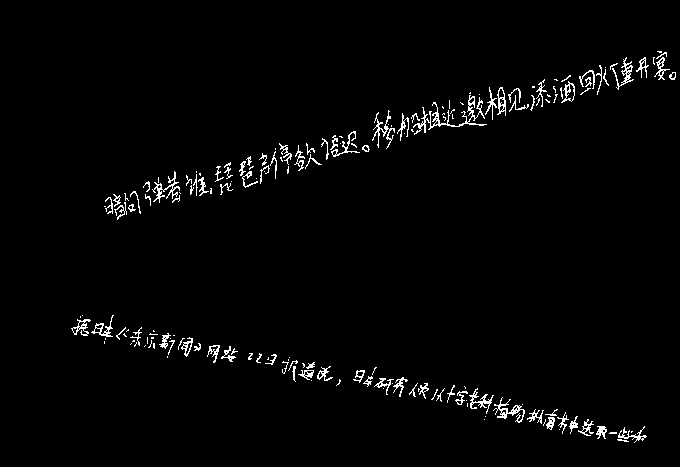 暗问弹者谁,琵琶声停欲语迟。移船相近邀相见,添酒回灯重开宴。
据日本《东京新闻》网站22日报道说,日本研究人员从十字花科植物拟南芥中选取一些和